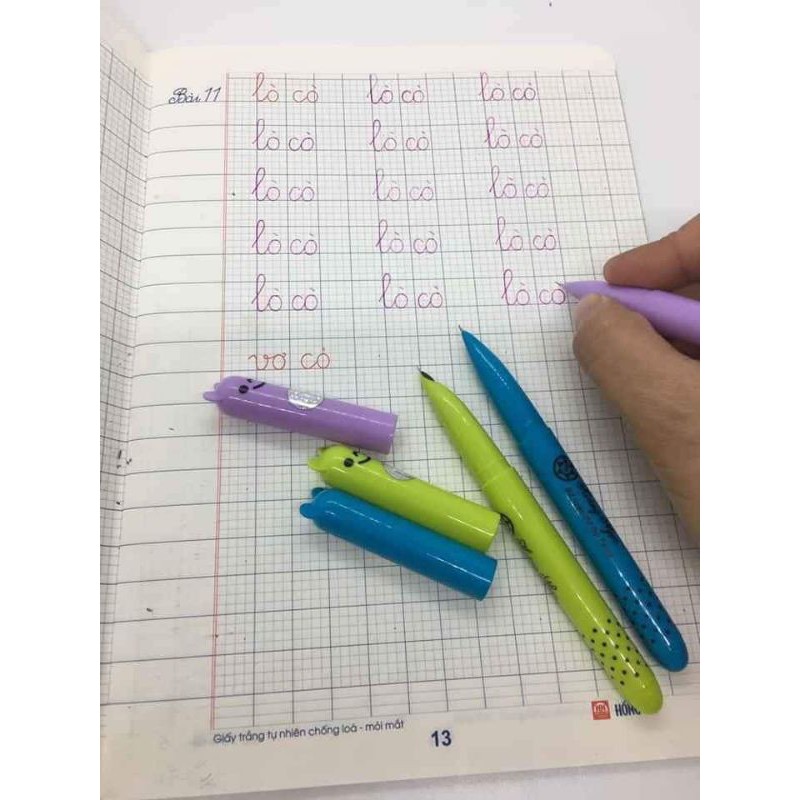 Bài 11 lò cò lò cò lò cò
lò cò lò cò lò cò
lò cò lò cò lò cò
lò cò lò cò lò cò
lò cò lò cò lò cò
vơ cỏ
Giấy trắng tự nhiên chống loá - mỏi mắt
13
HỒNG